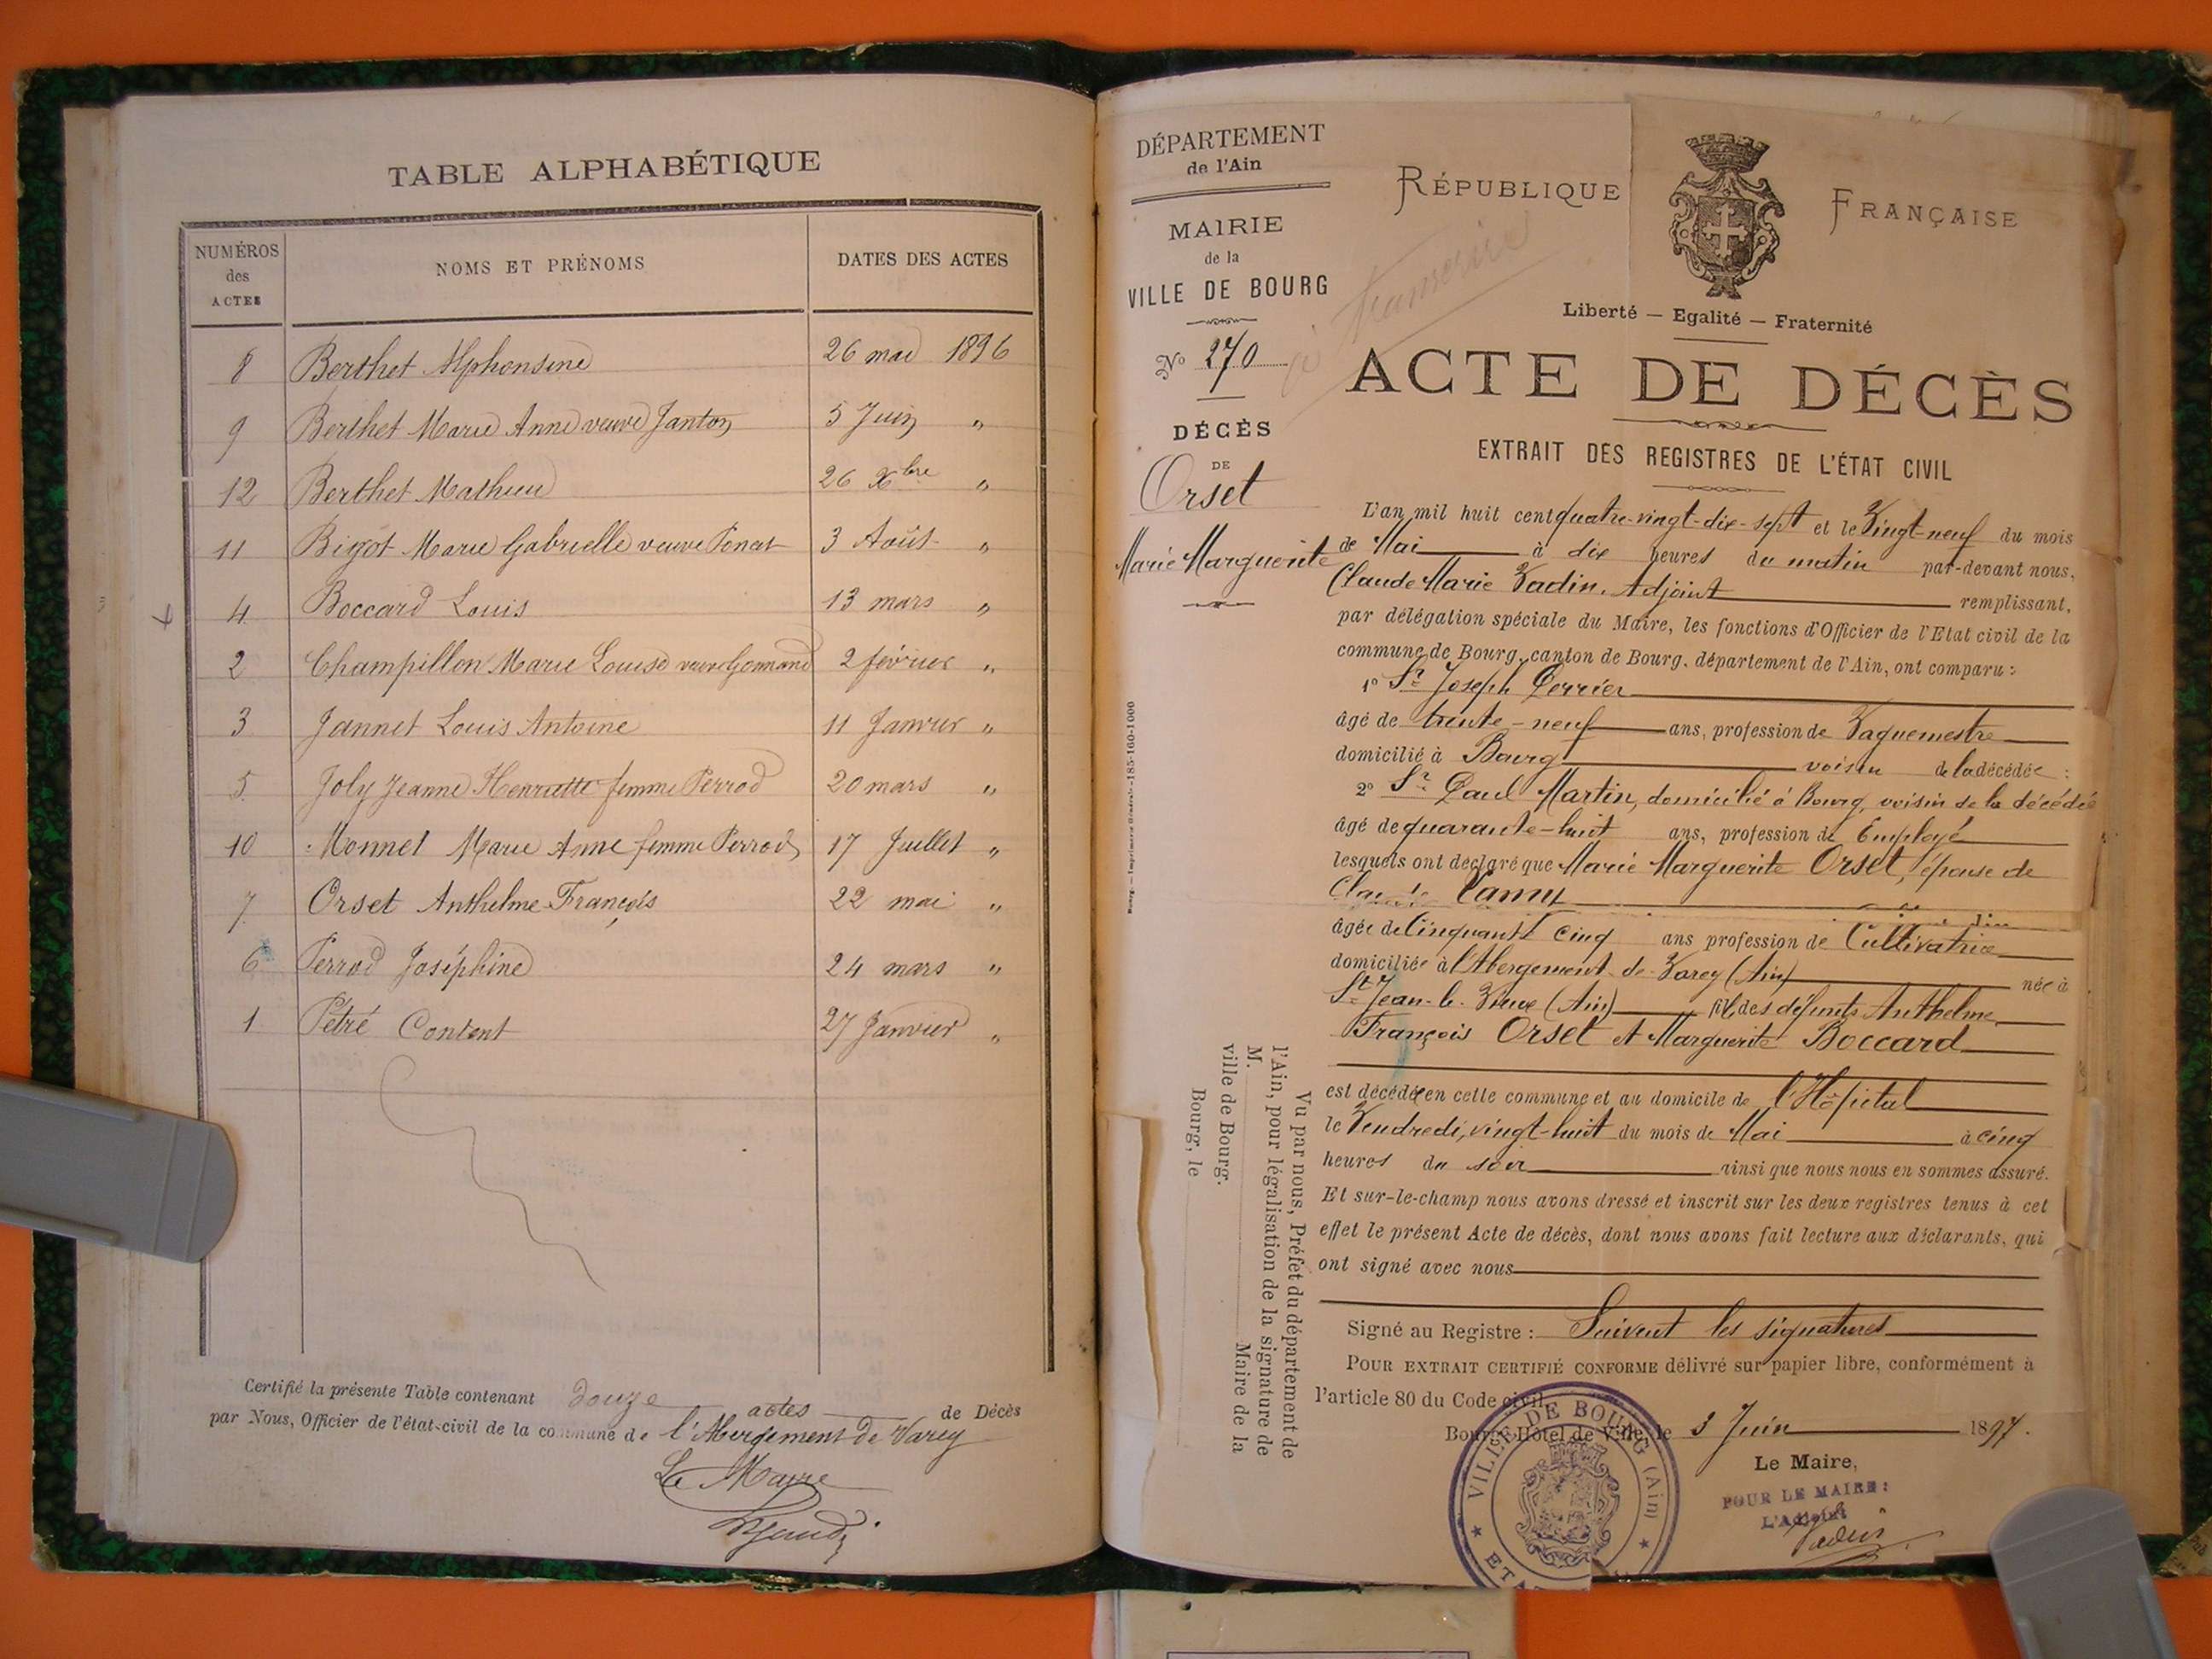 TABLE ALPHABÉTIQUE
NUMÉROS des ACTES
NOMS ET PRÉNOMS
DATES DES ACTES
8 Berthet Alphonsine 26 mai 1896
9 Berthet Marie Anne veuve Janton 5 Juin "
12 Berthet Mathieu 26 Xbre "
11 Bigot Marie Gabrielle veuve 3 Août "
4 Boccard Louis 13 mars "
2 Champillon Marie Louise veuve 2 février "
3 Jannet Louis Antoine 11 Janvier "
5 Joly Jeanne Henriette femme Perrod 20 mars "
10 Monnet Marie Anne femme Perrod 17 Juillet "
7 Orset Anthelme François 22 mai "
6 Perrod Joséphine 24 mars "
1 Pétré Content 27 Janvier "
Certifié la présente Table contenant douze actes de Décès
par Nous, Officier de l'état-civil de la commune de l'Abergement de Varey
Le Maire
DÉPARTEMENT
de l'Ain
MAIRIE
de la
VILLE DE BOURG
No 270
DÉCÈS
DE
Orset
Marie Marguerite
à transcrire
RÉPUBLIQUE FRANÇAISE
Liberté — Egalité — Fraternité
ACTE DE DÉCÈS
EXTRAIT DES REGISTRES DE L'ÉTAT CIVIL
L'an mil huit cent quatre-vingt-dix-sept et le Vingt-neuf du mois
de Mai à dix heures du matin par-devant nous,
Claude Marie Vadin, Adjoint remplissant,
par délégation spéciale du Maire, les fonctions d'Officier de l'Etat civil de la
commune de Bourg, canton de Bourg, département de l'Ain, ont comparu :
1o Sr Joseph Perrier
âgé de trente-neuf ans, profession de Vaguemestre
domicilié à Bourg voisin de la décédée :
2o Sr Paul Martin, domicilié à Bourg, voisin de la décédée
âgé de quarante-huit ans, profession de Employé
lesquels ont déclaré que Marie Marguerite Orset, épouse de
Claude
âgée de Cinquante cinq ans profession de Cultivatrice
domiciliée à l'Abergement-de-Varey (Ain) née à
St Jean-le-Vieux (Ain) fille des défunts Anthelme
François Orset et Marguerite Boccard
est décédée en cette commune et au domicile de l'Hôpital
le Vendredi, vingt-huit du mois de Mai à cinq
heures du soir ainsi que nous nous en sommes assuré.
Et sur-le-champ nous avons dressé et inscrit sur les deux registres tenus à cet
effet le présent Acte de décès, dont nous avons fait lecture aux déclarants, qui
ont signé avec nous
Signé au Registre : Suivent les signatures
POUR EXTRAIT CERTIFIÉ CONFORME délivré sur papier libre, conformément à
l'article 80 du Code civil
Bourg, Hôtel de Ville, le 3 Juin 1897.
Le Maire,
POUR LE MAIRE :
L'Adjoint
Vadin
VILLE DE BOURG (Ain)
Vu par nous, Préfet du département de
l'Ain, pour légalisation de la signature de
M. Maire de la
ville de Bourg.
Bourg, le